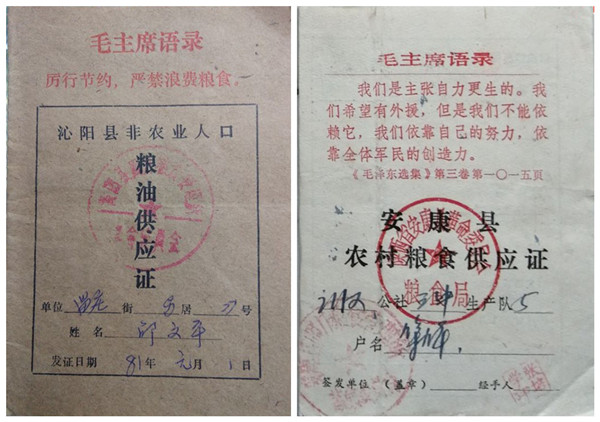 毛主席语录
厉行节约，严禁浪费粮食。
沁阳县非农业人口
粮油供应证
单位 街 居 号
姓名 邱文平
发证日期 81年元月1日
毛主席语录
我们是主张自力更生的。我
们希望有外援，但是我们不能依
赖它，我们依靠自己的努力，依
靠全体军民的创造力。
《毛泽东选集》第三卷第一〇一五页
安康县
农村粮食供应证
公社 生产队 5
户名
签发单位（盖章） 经手人
陕西省安康县革命委员会
粮食局